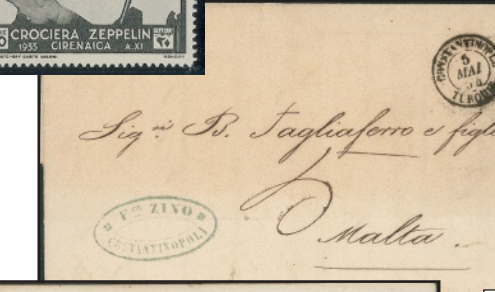 CROCIERA ZEPPELIN
1933 CIRENAICA A.XI
CONSTANTINOPLE
5
MAI
54
TURQUIE
Sigri B. Tagliaferro e figli
Malta.
Fco ZINO
COSTANTINOPOLI